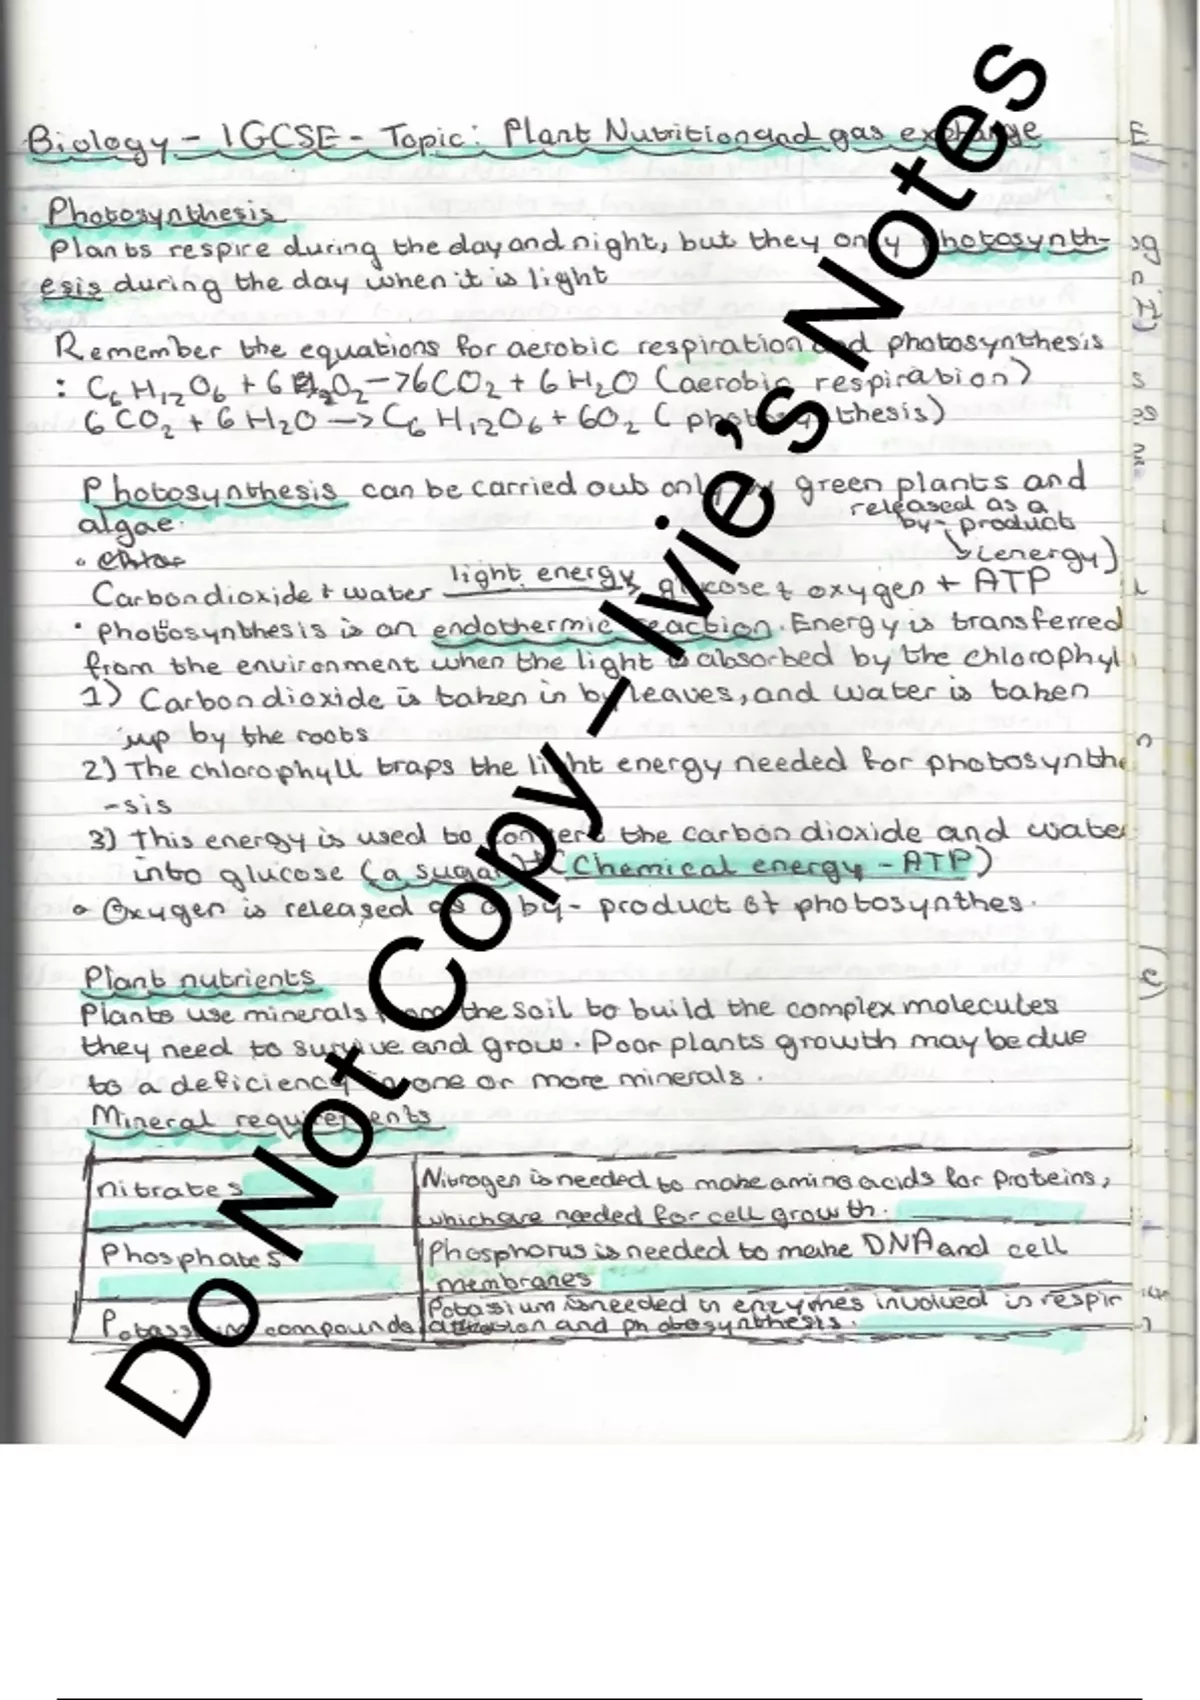 Biology - IGCSE - Topic: Plant Nutrition and gas exchange
Photosynthesis
Plants respire during the day and night, but they only photosynth-
esis during the day when it is light
Remember the equations for aerobic respiration and photosynthesis
: C6H12O6 + 6 O2 -> 6CO2 + 6H2O (aerobic respiration)
6CO2 + 6H2O -> C6H12O6 + 6O2 (photosynthesis)
Photosynthesis can be carried out only by green plants and
algae.
released as a
by-product
(energy)
light energy
Carbon dioxide + water -> glucose + oxygen + ATP
• photosynthesis is an endothermic reaction. Energy is transferred
from the environment when the light is absorbed by the chlorophyl
1) Carbon dioxide is taken in by leaves, and water is taken
up by the roots
2) The chlorophyll traps the light energy needed for photosynthe
-sis
3) This energy is used to convert the carbon dioxide and water
into glucose (a sugar) + (Chemical energy - ATP)
• Oxygen is released as a by-product of photosynthes.
Plant nutrients
Plants use minerals from the soil to build the complex molecules
they need to survive and grow. Poor plants growth may be due
to a deficiency in one or more minerals.
Mineral requirements
nitrates
Nitrogen is needed to make amino acids for proteins,
which are needed for cell growth.
Phosphates
Phosphorus is needed to make DNA and cell
membranes
Potassium compounds
Potassium is needed in enzymes involved in respir
ation and photosynthesis.
Do Not Copy – Ivie's Notes